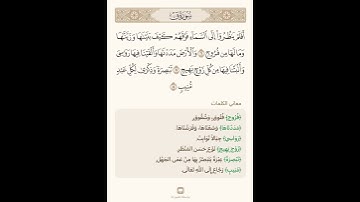 سورة ق
أَفَلَمْ يَنظُرُوٓا۟ إِلَى ٱلسَّمَآءِ فَوْقَهُمْ كَيْفَ بَنَيْنَٰهَا وَزَيَّنَّٰهَا
وَمَا لَهَا مِن فُرُوجٍ ٦ وَٱلْأَرْضَ مَدَدْنَٰهَا وَأَلْقَيْنَا فِيهَا رَوَٰسِىَ
وَأَنۢبَتْنَا فِيهَا مِن كُلِّ زَوْجٍۭ بَهِيجٍ ٧ تَبْصِرَةً وَذِكْرَىٰ لِكُلِّ عَبْدٍ
مُّنِيبٍ ٨
معاني الكلمات
﴿فُرُوجٍ﴾ فُتُوقٍ، وَشُقُوقٍ.
﴿مَدَدْنَاهَا﴾ وَسَّعْنَاهَا، وَفَرَشْنَاهَا.
﴿رَوَاسِيَ﴾ جِبَالًا ثَوَابِتَ.
﴿زَوْجٍ بَهِيجٍ﴾ نَوْعٍ حَسَنِ المَنْظَرِ.
﴿تَبْصِرَةً﴾ عِبْرَةً يُتَبَصَّرُ بِهَا مِنْ عَمَى الجَهْلِ.
﴿مُنِيبٍ﴾ رَجَّاعٍ إِلَى اللَّهِ تَعَالَى.